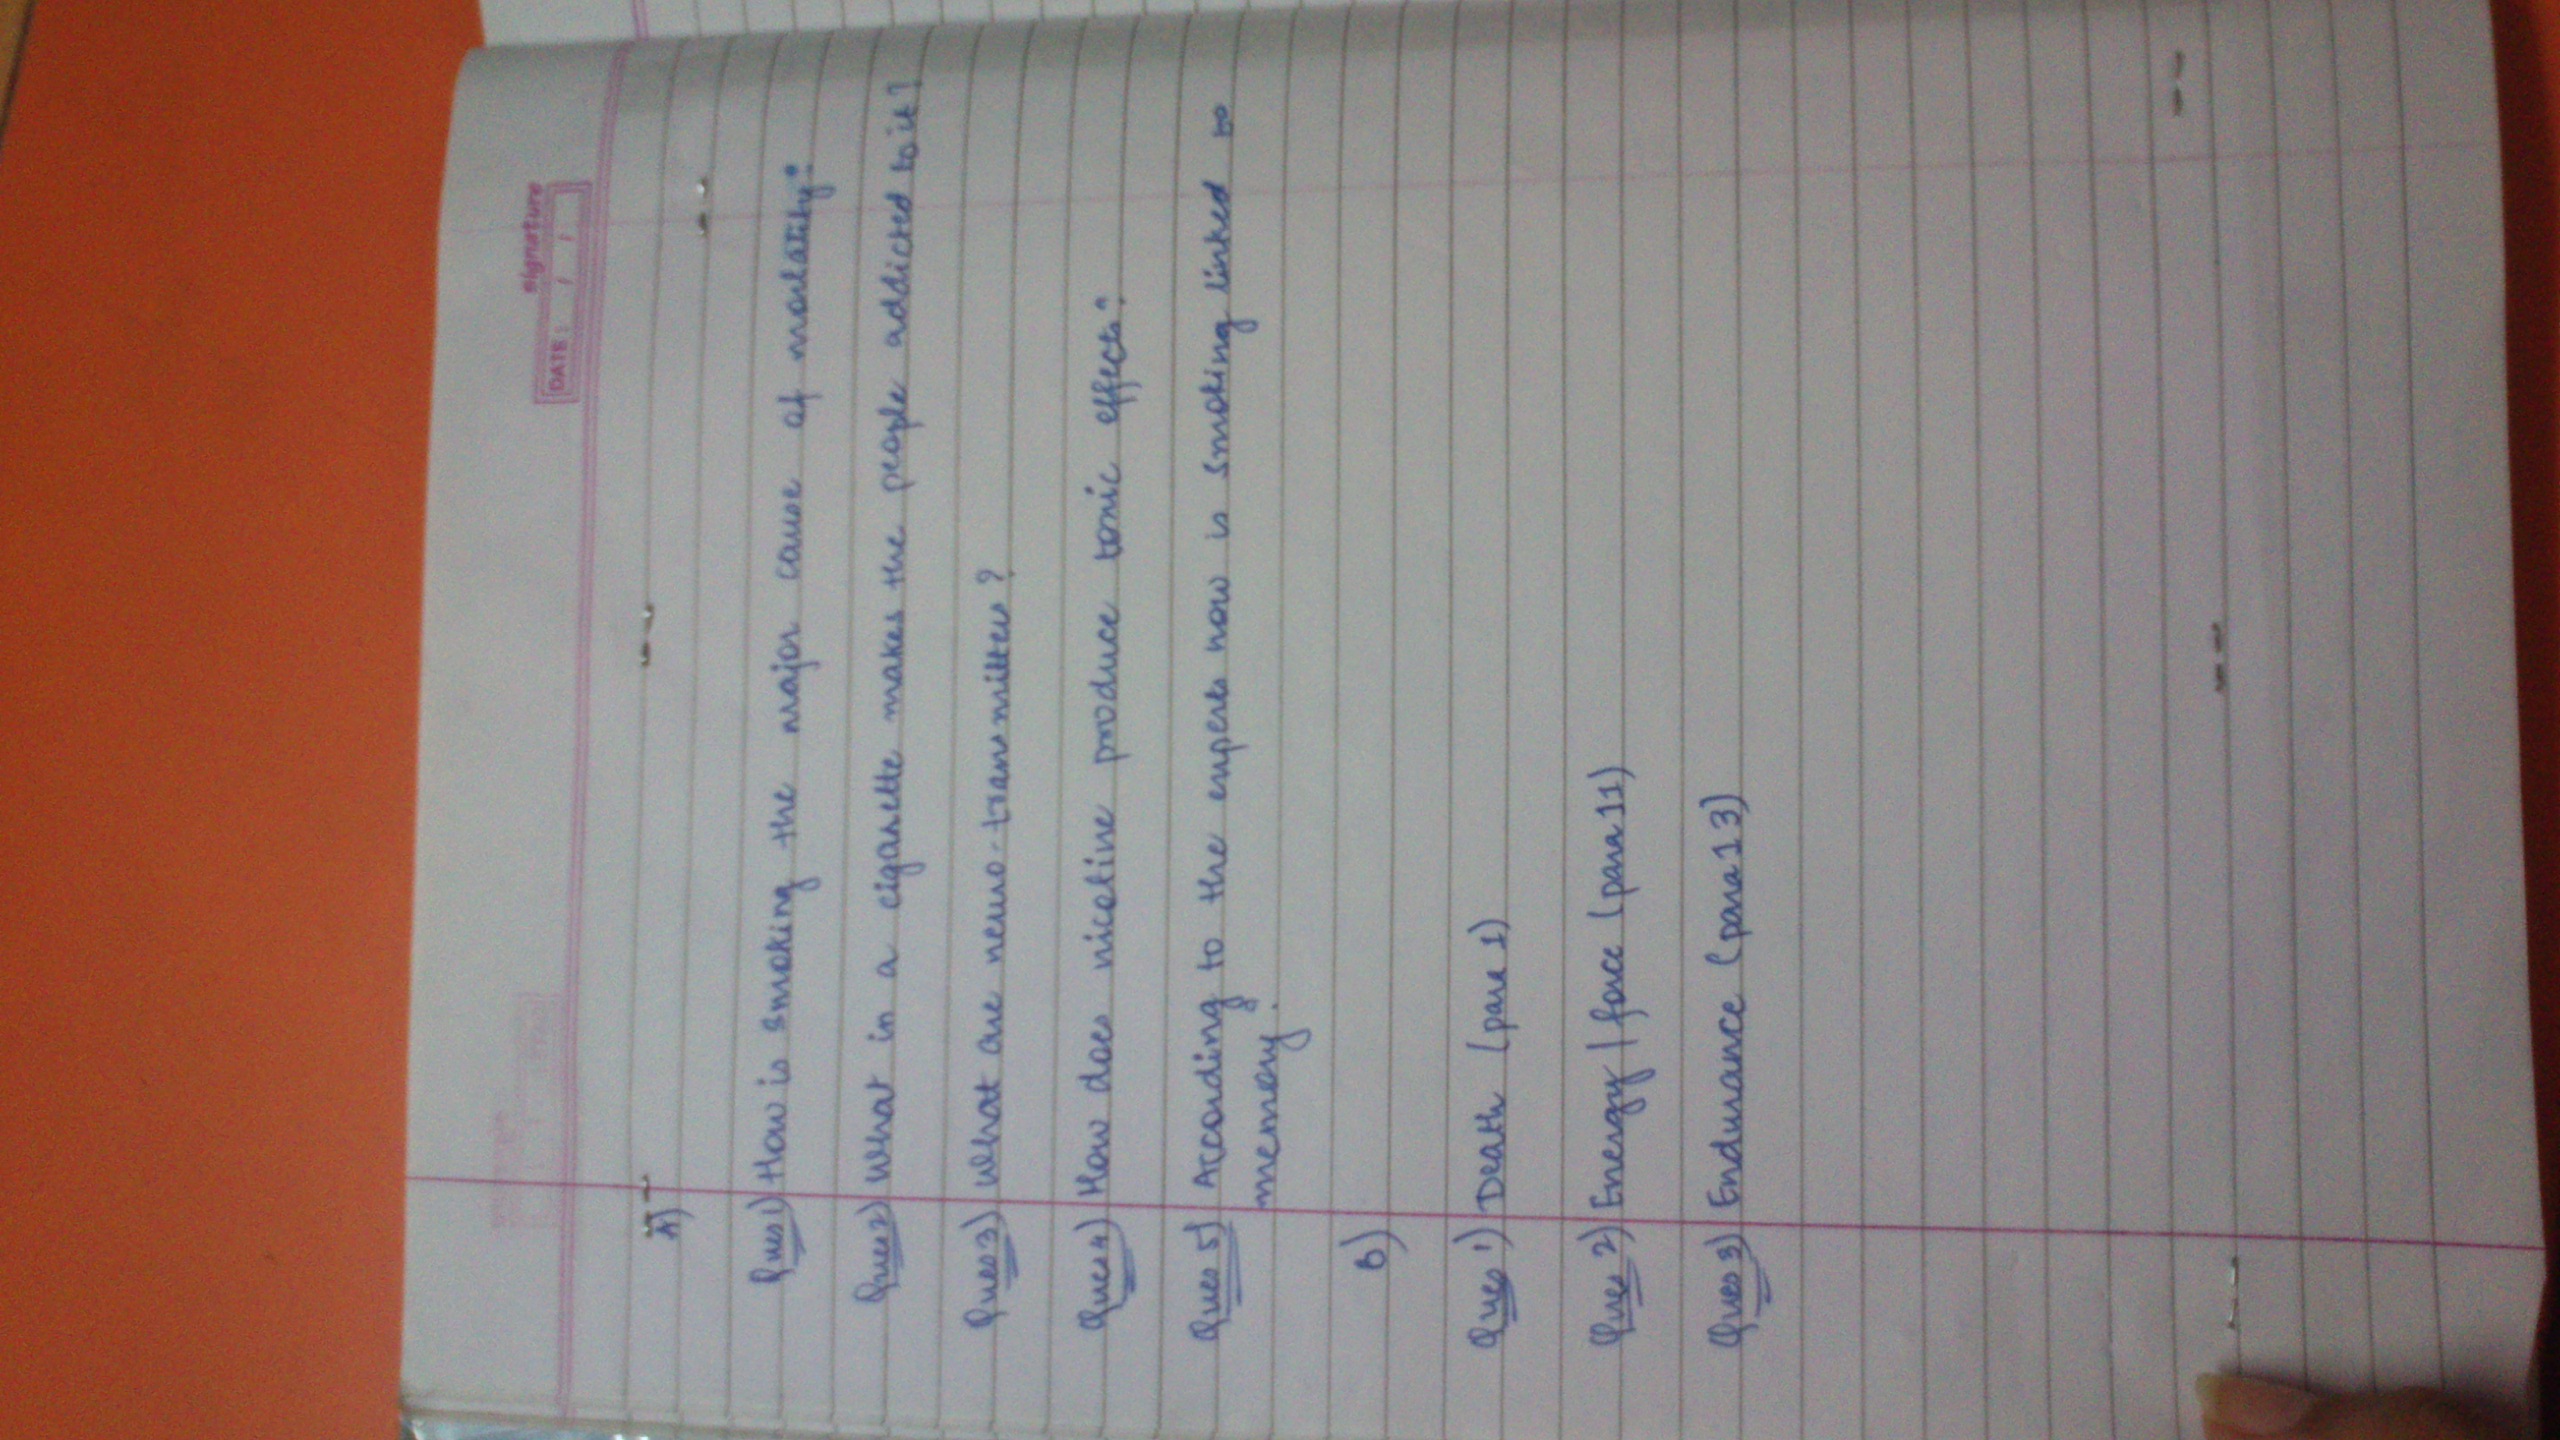 signature
DATE: / /
A)
Ques 1) How is smoking the major cause of mortality?
Ques 2) What in a cigarette makes the people addicted to it?
Ques 3) What are neuro-transmitters?
Ques 4) How does nicotine produce toxic effects?
Ques 5) According to the experts how is smoking linked to
memory?
B)
Ques 1) Death (para 1)
Ques 2) Energy / force (para 11)
Ques 3) Endurance (para 13)